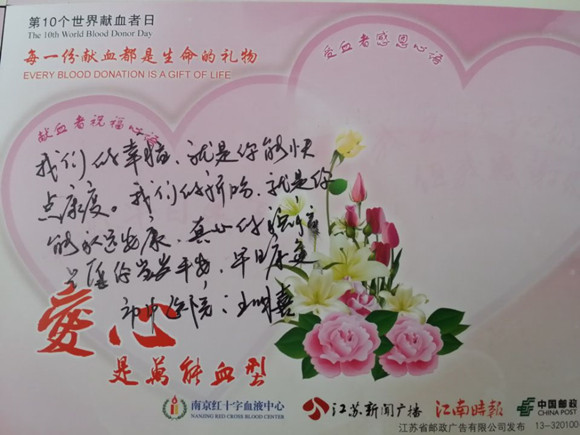 第10个世界献血者日
The 10th World Blood Donor Day
每一份献血都是生命的礼物
EVERY BLOOD DONATION IS A GIFT OF LIFE
受血者感恩心语
献血者祝福心语
我们的幸福、就是你能快
点康复。我们的祈盼、就是你
能永远安康、真心的祝福
与愿你岁岁平安、早日康复
市中医院：王明喜
愛心
是萬能血型
南京红十字血液中心
NANJING RED CROSS BLOOD CENTER
江苏新闻广播
江南时报
中国邮政
CHINA POST
江苏省邮政广告有限公司发布
13-320100